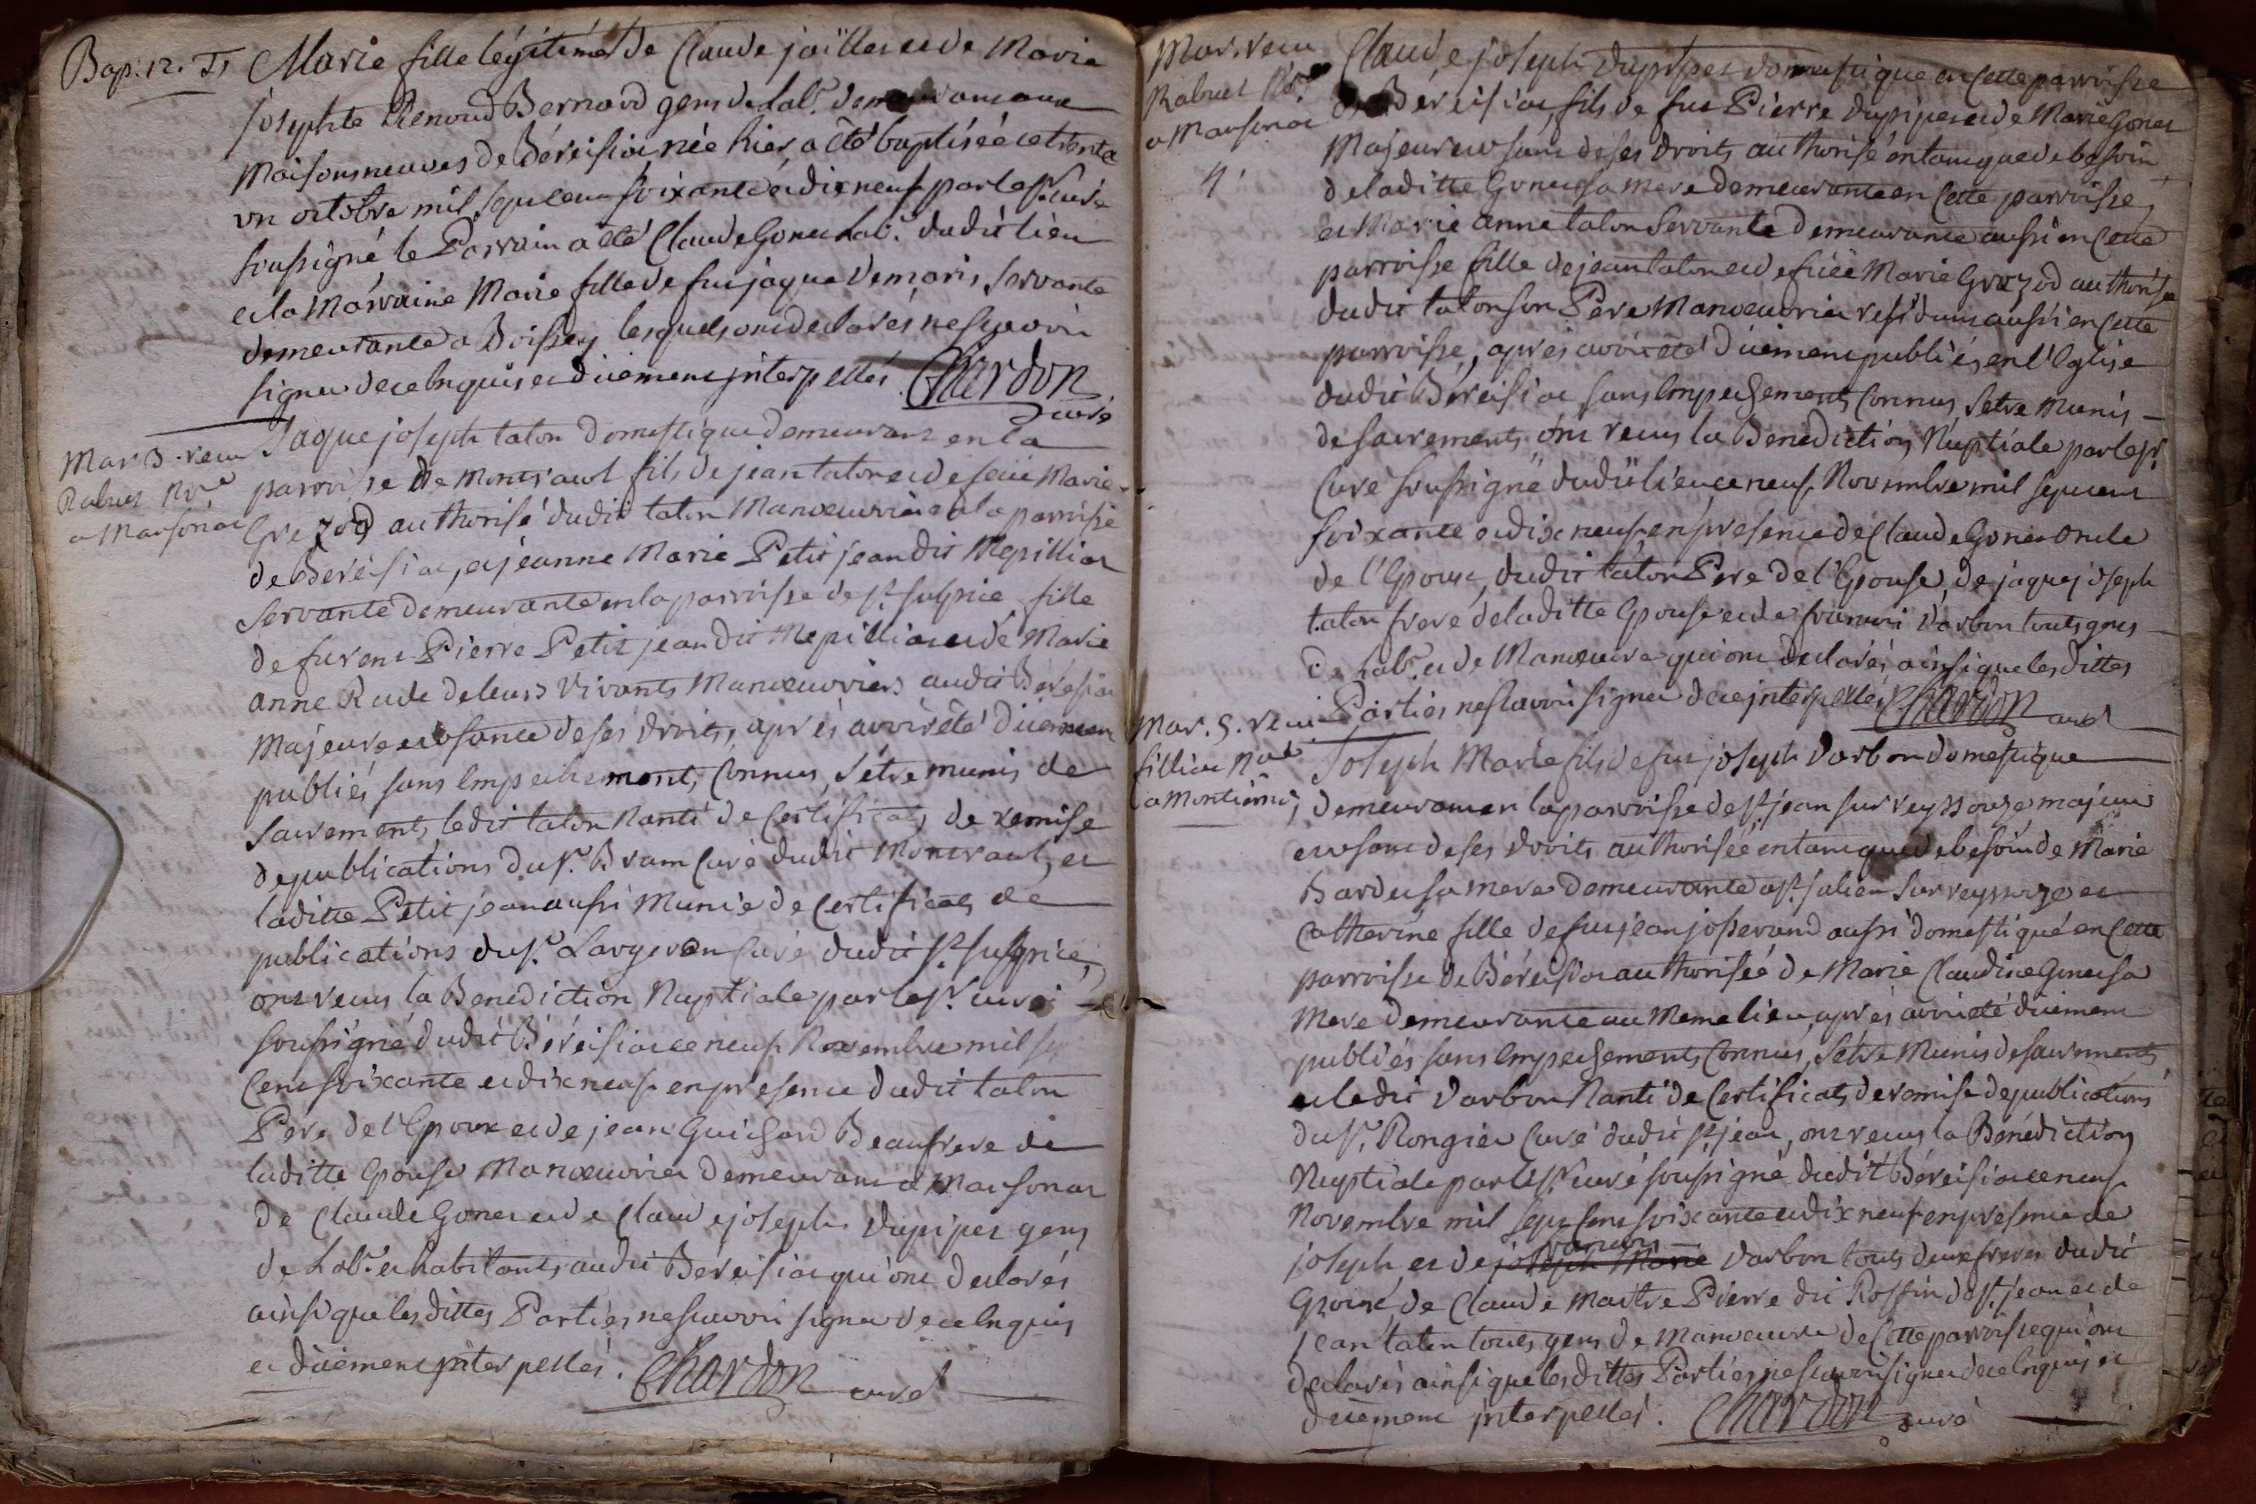 Bap. 12. F.
Marie fille légitime de Claude jaillet et de Marie
josephte Renoud Bernard gens de lab.r demeurans aux
Maisons neuves de Béréisia née hier a été baptisée ce trente
un octobre mil sept cent soixante et dix neuf par le Sr. curé
soussigné le Parrain a été Claude Gonet lab.r dudit lieu
et la Marraine Marie fille de fut jaque Demaris, servante
demeurante a Boissey lesquels ont declarés ne sçavoir
signer de ce Enquis et düement jnterpellés. Chardon
curé
Mar. 3. reçu
Rabuet No.re
a Marsonat
Jaque joseph taton Domestique demeurant en la
parroisse de Montraul fils de jean taton et de feüe Marie
Grezod authorisé dudit taton Manœuvrier en la parroisse
de Béréisiat, et jeanne Marie Petit jean dit Mepilliat
servante demeurante en la parroisse de St. sulpice fille
de furent Pierre Petit jean dit Mepilliat et de Marie
anne Rude de leurs vivants Manœuvriers audit Béréisia
Majeure et usante de ses droits, aprés avoir été düement
publiés sans Empechements Connus, s'étre munis de
sacrements, ledit taton Nanti de Certificats de remise
de publications du Sr. Brum Curé dudit Montraul, et
laditte Petit jean aussi Munie de Certificats de
publications du Sr. Largeron Curé dudit St. sulpice,
ont reçus la Benediction Nuptiale par le Sr. curé
soussigné dudit Béréisia ce neuf Novembre mil sept
Cent soixante et dix neuf en presence dudit taton
Pere de l'Epoux et de jean Guichard Beaufrere de
laditte Epouse Manœuvrier demeurant a Marsonat
de Claude Gonet et de Claude joseph dupipet gens
de Lab.r et habitants audit Béréisia qui ont declarés
ainsi que les dittes Parties ne sçavoir signer de ce Enquis
et düement jnterpellés. Chardon curé
Mar. reçu
Rabuet No.re
a Marsonat
4.
Claude joseph dupipet domestique en cette parroisse
de Béréisiat, fils de fut Pierre dupipet et de Marie Gonet
Majeur et usant de ses droits authorisé en tant que de besoin
de laditte Gonet sa mere demeurante en cette parroisse,
et Marie anne taton servante demeurante aussi en cette
parroisse fille de jean taton et de feüe Marie Grezod authorisée
dudit taton son Pere Manœuvrier residant aussi en cette
parroisse, aprés avoir été düement publiés en l'Eglise
dudit Béréisiat sans Empechements Connus, s'etre munis
de sacrements, ont reçus la Benediction Nuptiale par le Sr.
Curé soussigné dudit lieu ce neuf Novembre mil sept cent
soixante et dix neuf en presence de Claude Gonet Oncle
de l'Epoux, dudit taton Pere de l'Epouse, de jaque joseph
taton frere de laditte Epouse et de francois Varbon touts gens
de Lab.r et de Manœuvre qui ont declarés ainsi que les dittes
Parties ne sçavoir signer de ce jnterpellés Chardon curé
Mar. 5. reçu
fillion No.re
a Montieur,
Joseph Marie fils de fut joseph Varbon domestique
demeurant en la parroisse de St. jean sur reyssouze majeur
et usant de ses droits authorisé en tant que de besoin de Marie
Bardet sa mere demeurante a St. julien sur reyssouze et
Catherine fille de fut jean josserand aussi domestique en cette
parroisse de Béréisia authorisée de Marie Claudine Gonet sa
Mere demeurante au meme lieu, aprés avoir été düement
publiés sans Empechements Connus, s'etre munis de sacrements
et ledit Varbon Nanti de Certificats de remise de publications
du Sr. Rongier Curé dudit St. jean, ont reçus la Bénédiction
Nuptiale par le Sr. curé soussigné dudit Béréisia ce neuf
Novembre mil sept Cent soixante et dix neuf en presence de
joseph et de joseph Marie francois Varbon touts deux freres dudit
Epoux de Claude maitre Pierre dit Roffin de St. jean et de
jean taton touts gens de manœuvre de Cette parroisse qui ont
declarés ainsi que les dittes Parties ne sçavoir signer de ce Enquis et
düement jnterpellés. Chardon curé